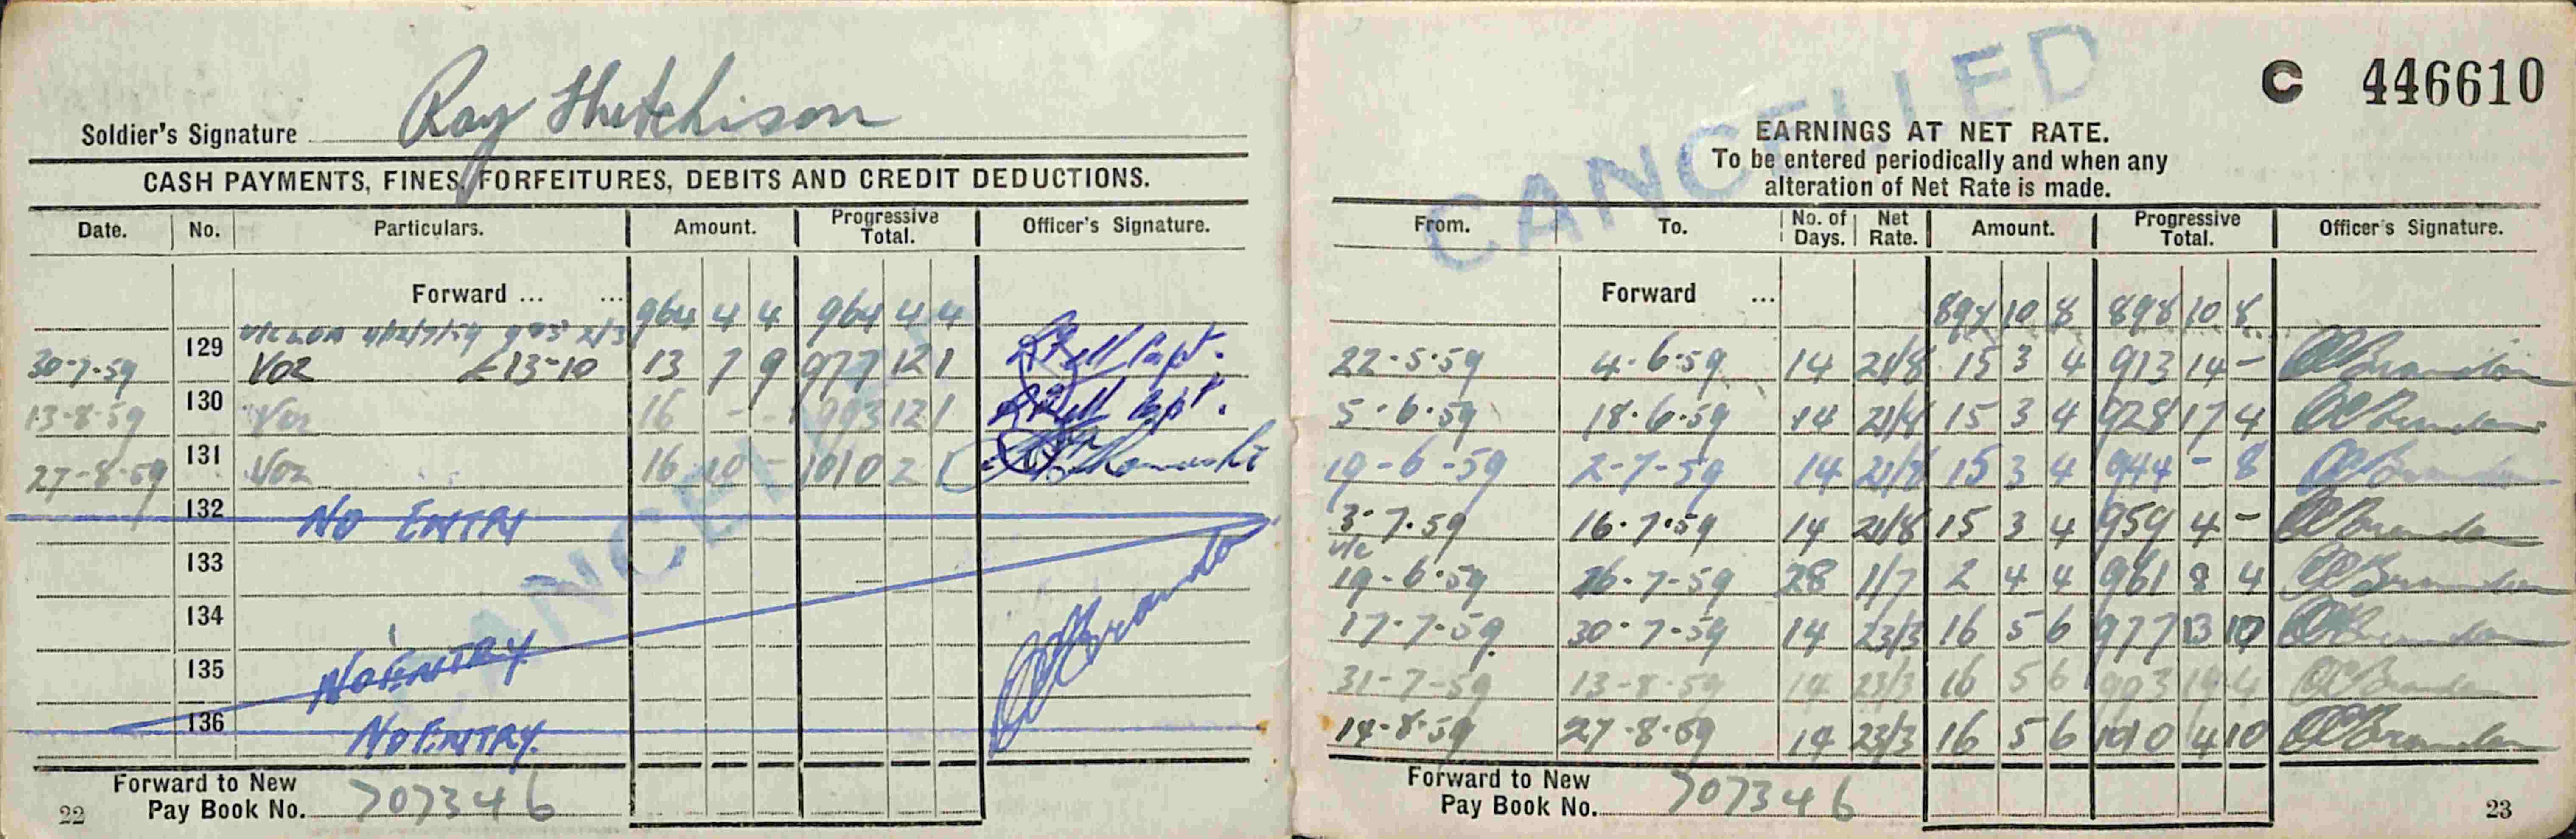 Soldier's Signature Ray Hutchison
CASH PAYMENTS, FINES, FORFEITURES, DEBITS AND CREDIT DEDUCTIONS.
Date. No. Particulars. Amount. Progressive Total. Officer's Signature.
Forward ... ... 964 4 4 964 4 4
30-7-59 129 Voz £13-10 13 7 9 977 12 1
13-8-59 130 Voz 16 - - 993 12 1
27-8-59 131 Voz 16 10 - 1010 2 1
132 NO ENTRY
133
134
135 NO ENTRY
136 NO ENTRY
Forward to New
Pay Book No. 707346
22
CANCELLED
C 446610
CANCELLED
EARNINGS AT NET RATE.
To be entered periodically and when any
alteration of Net Rate is made.
From. To. No. of Days. Net Rate. Amount. Progressive Total. Officer's Signature.
Forward ... 898 10 8 898 10 8
22-5-59 4-6-59 14 21/8 15 3 4 913 14 -
5-6-59 18-6-59 14 21/8 15 3 4 928 17 4
19-6-59 2-7-59 14 21/8 15 3 4 944 - 8
3-7-59 16-7-59 14 21/8 15 3 4 959 4 -
19-6-59 16-7-59 28 1/7 2 4 4 961 8 4
17-7-59 30-7-59 14 23/3 16 5 6 977 13 10
31-7-59 13-8-59 14 23/3 16 5 6 993 19 4
14-8-59 27-8-59 14 23/3 16 5 6 1010 4 10
Forward to New
Pay Book No. 707346
23